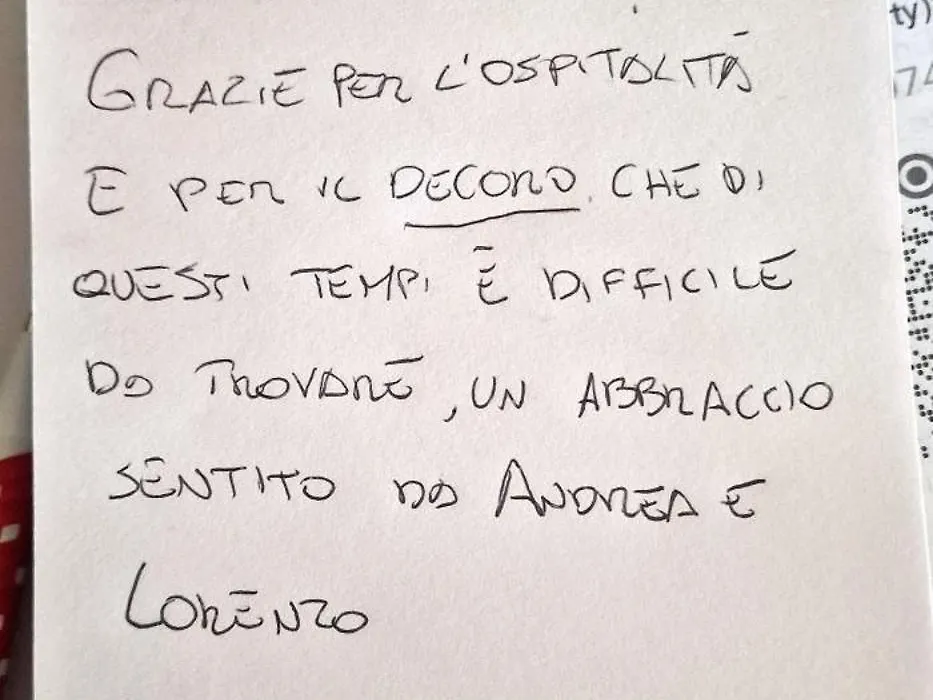 GRAZIE PER L'OSPITALITÀ
E PER IL DECORO CHE DI
QUESTI TEMPI È DIFFICILE
DA TROVARE, UN ABBRACCIO
SENTITO DA ANDREA E
LORENZO
ty)
74